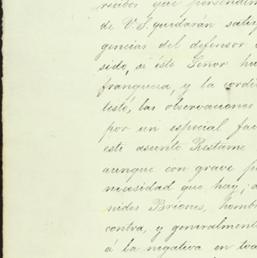 recibos que personalm
de V.S. quedarán satisf
gencias del defensor
side, si éste Señor hu
franqueza, y la cordi
testé, las observaciones
por un especial fac
este asunto Restame
aunque con grave p
necesidad que hay, a
nides Briones, homb
contra, y generalment
á la negativa en tra